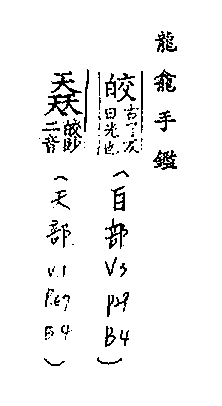 龍龕手鑑
皎古了反日光也（白部V3P29B4）
𡘙皎眇二音（天部V.1P.67B4）